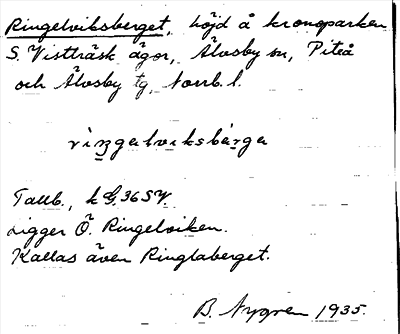 Ringelviksberget, höjd å kronoparken
S. Vistträsk ägor, Älvsby sn, Piteå
och Älvsby tg, Norrb. l.
riŋgəlviksbärgə
Tallb., k G. 36 SV.
Ligger Ö. Ringelviken.
Kallas även Ringlaberget.
B. Nygren 1935.